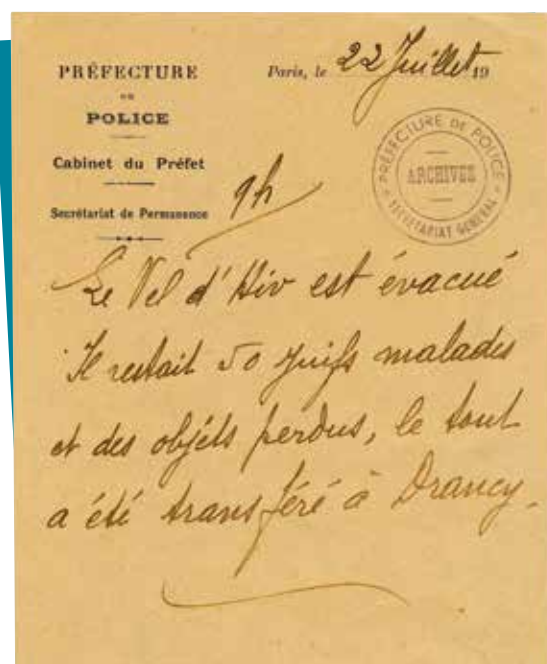 PRÉFECTURE
DE
POLICE
Cabinet du Préfet
Secrétariat de Permanence
Paris, le 22 Juillet 19
PRÉFECTURE DE POLICE
ARCHIVES
SECRETARIAT GENERAL
9h
Le Vel d'Hiv est évacué
Il restait 50 juifs malades
et des objéts perdus, le tout
a été transféré à Drancy.